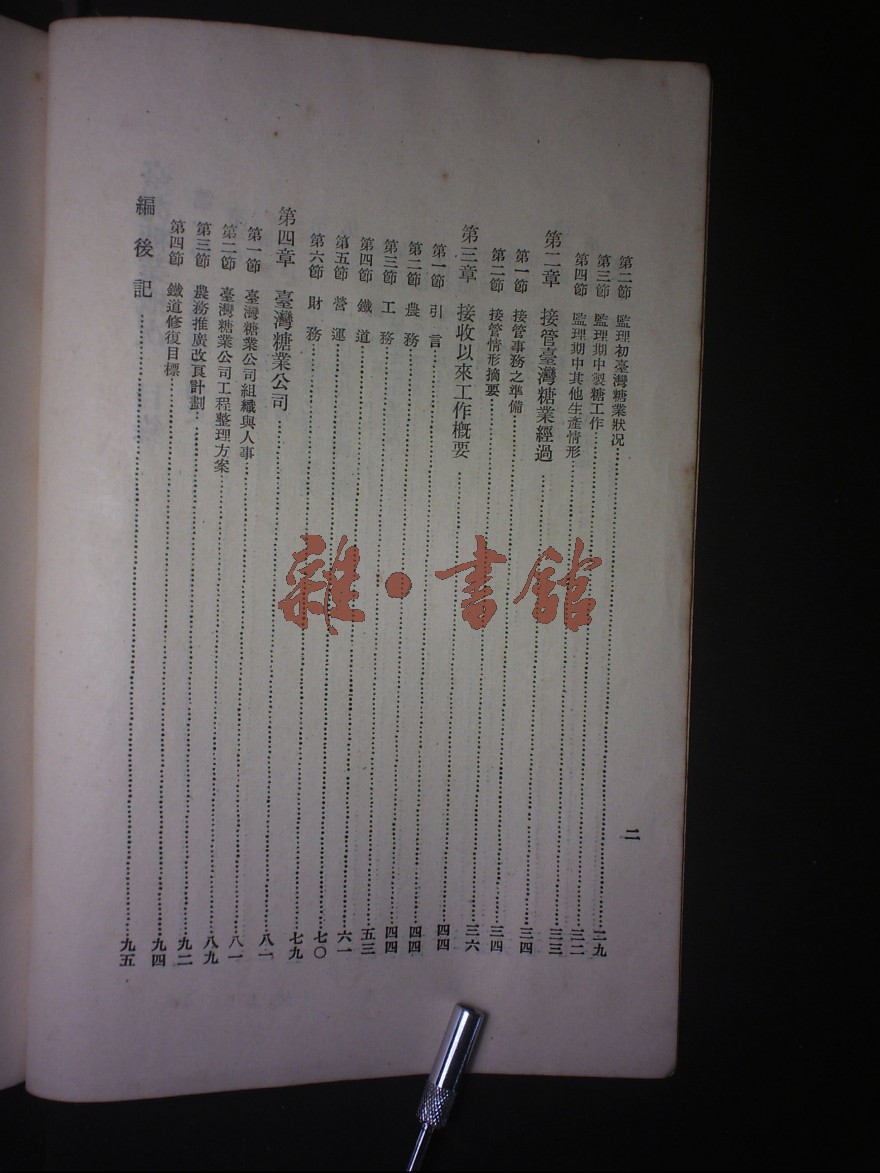 第二節 監理初臺灣糖業狀况……二九
第三節 監理期中製糖工作……三二
第四節 監理期中其他生產情形……三三
第二章 接管臺灣糖業經過……三四
第一節 接管事務之準備……三四
第二節 接管情形摘要……三六
第三章 接收以來工作概要……四四
第一節 引言……四四
第二節 農務……四四
第三節 工務……五三
第四節 鐵道……六一
第五節 營運……七〇
第六節 財務……七九
第四章 臺灣糖業公司……八一
第一節 臺灣糖業公司組織與人事……八一
第二節 臺灣糖業公司工程整理方案……八九
第三節 農務推廣改良計劃……九二
第四節 鐵道修復目標……九四
編後記……九五
二
雜·書館